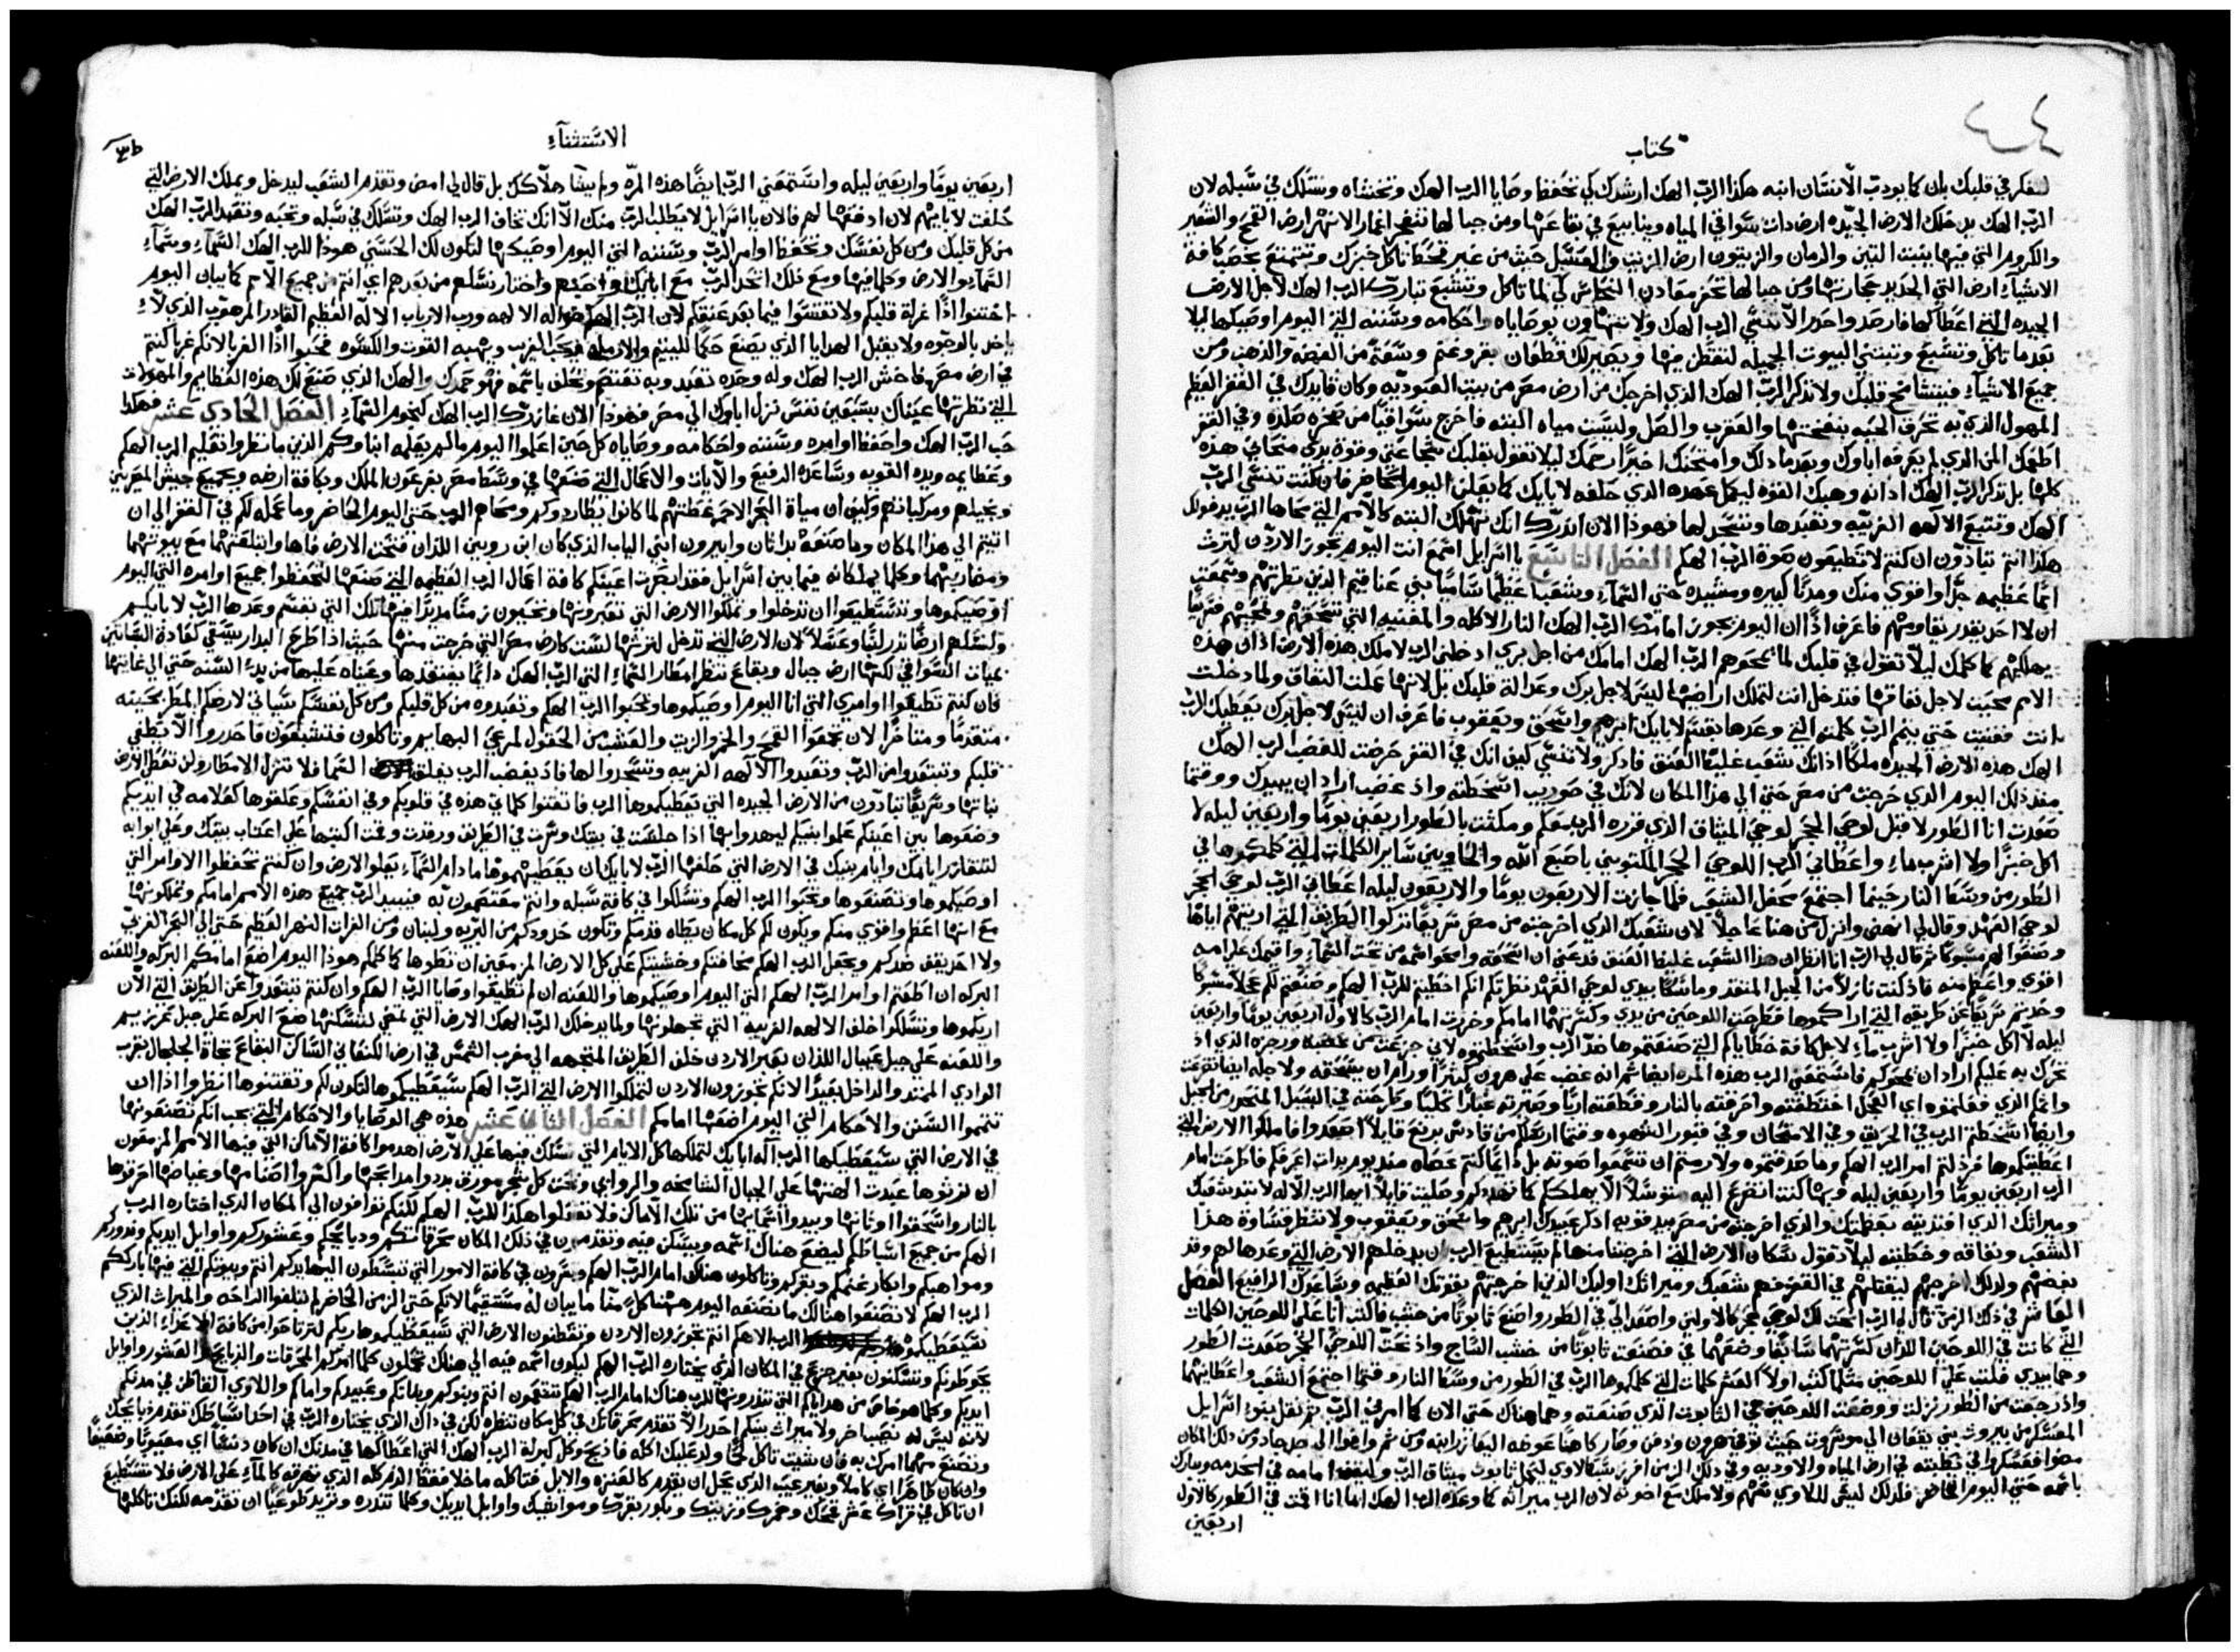 كتاب
لتفكر في قلبك بان كما يودب الانسان ابنه هكذا الرب الهك ارشدك كي تحفظ وصايا الرب الهك وتخشاه وتسلك في سبله لان
الرب الهك يدخلك الارض الجيده ارض ذات سواقي المياه وينابيع في بقاعها ومن جبالها تنفجر اغمار الانهر ارض القمح والشعير
والكروم التي فيها ينبت التين والرمان والزيتون ارض الزيت والعسل حيث من غير قحط تاكل خبزك وتتمتع بخصب كافة
الاشياء ارض التي الحديد حجارتها ومن جبالها تحفر معادن النحاس كي لما تاكل وتشبع تبارك الرب الهك لاجل الارض
الجيده التي اعطاكها فارصد واحدر الا تنسي الرب الهك ولا تتهاون بوصاياه واحكامه وسننه التي اليوم اوصيكها ليلا
بعدما تاكل وتشبع وتبتني البيوت الجميله لتقطن فيها ويصير لك قطعان بقر وغنم وسعة من الفضه والذهب ومن
جميع الاشياء فيتشامخ قلبك ولا تذكر الرب الهك الذي اخرجك من ارض مصر من بيت العبوديه وكان قايدك في القفر العظيم
المهول الذي به تحرق الحيه بنفختها والعقرب والصل وليست مياه البته فاخرج سواقيا من صخره صلده وفي القفر
اطعمك المن الذي لم يعرفه اباوك وبعدما ذلك وامتحنك اخيرا رحمك ليلا تقول بقلبك شجاعتي وقوة يدي منحاني هذه
كلها بل تذكر الرب الهك اذ انه وهبك القوه ليكمل عهده الذي حلفه لابايك كما يعلن اليوم الحاضر فان كنت تنسي الرب
الهك وتتبع الالهه الغريبه وتعبدها وتسجد لها فهوذا الان انذرك انك تهلك البته كالامم التي محاها الرب بدخولك
هكذا انتم تبادون ان كنتم لا تطيعون صوة الرب الهكم الفصل التاسع يا اسرايل اسمع انت اليوم تجوز الاردن لترث
امما عظيمه جدا واقوي منك ومدنا كبيره ومشيده حتي السماء وشعبا عظيما ساميا بني عناقيم الذين نظرتهم وسمعت
ان لا احد يقدر يقاومهم فاعرف اذا ان اليوم يجوز امامك الرب الهك النار الاكله والمفنيه التي تسحقهم وتمحيهم سريعا
يهلكهم كما كلمك ليلا تقول في قلبك لما يمحوهم الرب الهك امامك من اجل بري ادخلني الرب لاملك هذه الارض اذ ان هذه
الامم محيت لاجل نفاقها فتدخل انت لتملك اراضيها ليس لاجل برك وعدالة قلبك بل لانها عملت النفاق ولما دخلت
انت ففنيت حتي يتم الرب كلمته التي وعدها بقسم لابايك ابرهيم واسحق ويعقوب فاعرف ان ليس لاجل برك يعطيك الرب
الهك هذه الارض الجيده ملكا اذ انك شعب غليظ العنق فاذكر ولا تنسي كيف انك في القفر حرضت للغضب الرب الهك
منذ ذلك اليوم الذي خرجت من مصر حتي الي هذا المكان لانك في حوريب اسخطته واذ غضب اراد ان يبيدك ووقتما
صعدت انا الطور لاقبل لوحي الحجر لوحي الميثاق الذي قرره الرب معكم ومكثت بالطور اربعين يوما واربعين ليله لا
اكل خبزا ولا اشرب ماء واعطاني الرب اللوحي الحجر المكتوبين باصبع الله والحاويين ساير الكلمات التي كلمكموها في
الطور من وسط النار حينما اجتمع محفل الشعب فلما جازت الاربعون يوما والاربعون ليله اعطاني الرب لوحي الحجر
لوحي العهد وقال لي انهض وانزل من هنا عاجلا لان شعبك الذي اخرجته من مصر سريعا تركوا الطريق التي اريتهم اياها
وصنعوا لهم مسبوكا ثم قال لي الرب انا انظر ان هذا الشعب غليظ العنق فدعني ان اسحقه وامحو اسمه من تحت السماء واقيمك علي امه
اقوي واعظم منه فاذ كنت نازلا من الجبل المتقد وماسكا بيدي لوحي العهد نظرتكم انكم اخطيتم للرب الهكم وصنعتم لكم عجلا مسبوكا
وحدتم سريعا عن طريقه التي اراكموها فطرحت اللوحين من يدي وكسرتهما امامكم وخررت امام الرب كالاول اربعين يوما واربعين
ليله لا اكل خبزا ولا اشرب ماء لاجل كافة خطاياكم التي صنعتموها ضد الرب واسخطتموه لاني جزعت من غضبه ورجزه الذي اذ
تحرك به عليكم اراد ان يمحوكم فاستمعني الرب هذه المره ايضا ثم انه غضب علي هرون كثيرا ورام ان يسحقه ولاجله ايضا تضرعت
واثمكم الذي فعلتموه اي العجل اختطفته واحرقته بالنار وقطعته اربا وصيرته غبارا كليا وطرحته في السيل المنحدر من الجبل
وايضا اسخطتم الرب في الحريق وفي الامتحان وفي قبور الشهوه ووقتما ارسلكم من قادش برنع قايلا اصعدوا فاملكوا الارض التي
اعطيتكموها فرذلتم امر الرب الهكم وما صدقتموه ولا رمتم ان تسمعوا صوته بل دايما كنتم عصاه منذ يوم بدات اعرفكم فانطرحت امام
الرب اربعين يوما واربعين ليله وبها كنت اتضرع اليه متوسلا الا يهلككم كما تهددكم وصليت قايلا ايها الرب الاله لا تبد شعبك
وميراثك الذي افتديته بعظمتك والذي اخرجته من مصر بيد قويه اذكر عبيدك ابرهيم واسحق ويعقوب ولا تنظر قساوة هذا
الشعب ونفاقه وخطيته ليلا تقول سكان الارض التي اخرجتنا منها لم يستطيع الرب ان يدخلهم الارض التي وعدها لهم وقد
بغضهم ولذلك اخرجهم ليقتلهم في القفر فهم شعبك وميراثك اوليك الذين اخرجتهم بقوتك العظيمه وبساعدك الرافيع الفصل
العاشر في ذلك الزمن قال لي الرب انحت لك لوحي حجر كالاولين واصعد الي في الطور واصنع تابوتا من خشب فاكتب انا علي اللوحين الكلمات
التي كانت في اللوحين اللذان كسرتهما سابقا وضعهما في فصنعت تابوتا من خشب الساج واذ نحت اللوحي الحجر صعدت الطور
وهما بيدي فكتب علي اللوحين مثلما كتب اولا العشر كلمات التي كلمكموها الرب في الطور من وسط النار وقتما اجتمع الشعب واعطانيهما
واذ رجعت من الطور نزلت ووضعت اللوحين في التابوت الذي صنعته وهما هناك حتي الان كما امرني الرب ثم نقل بنوا اسرايل
المعسكر من بيروث بني يعقان الي موسروت حيث توفي هرون ودفن وصار كاهنا عوضه اليعازر ابنه ومن ثم وافوا الي جدجاد ومن ذلك المكان
مضوا فعسكروا في يطبته في ارض المياه والاوديه وفي ذلك الزمن افرز سبط لاوي ليحمل تابوت ميثاق الرب وليقف امامه في الخدمه ويبارك
باسمه حتي اليوم الحاضر فلذلك ليس للاوي سهم ولا ملك مع اخوته لان الرب ميراثه كما وعده الرب الهك اما انا اقمت في الطور كالاول
اربعين
الاستثناء
اربعين يوما واربعين ليله واستمعني الرب ايضا هذه المره ولم يشا هلاكك بل قال لي امض وتقدم الشعب ليدخل ويملك الارض التي
حلفت لابايهم لان ادفعها لهم فالان يا اسرايل لا يطلب الرب منك الا انك تخاف الرب الهك وتسلك في سبله وتحبه وتعبد الرب الهك
من كل قلبك ومن كل نفسك وتحفظ اوامر الرب وسننه التي اليوم اوصيكها لتكون لك الحسني هوذا للرب الهك السماء وسماء
السماء والارض وكلما فيها ومع ذلك اتحد الرب مع ابايك واحبهم واختار نسلهم من بعدهم اي انتم من جميع الامم كما يبان اليوم
اختتنوا اذا غرلة قلبكم ولا تقسوا فيما بعد عنقكم لان الرب الهكم هو اله الالهه ورب الارباب الاله العظيم القادر المرهوب الذي لا
ياخذ بالوجوه ولا يقبل الهدايا الذي يصنع حكما لليتيم والارمله ويحب الغريب ويهبه القوت والكسوه فحبوا اذا الغربا لانكم غربا كنتم
في ارض مصر فاخش الرب الهك وله وحده تعبد وبه تعتصم وتحلف باسمه فهو حمدك والهك الذي صنع لك هذه العظايم والمهولات
التي نظرتها عيناك بسبعين نفس نزل اباوك الي مصر فهوذا الان غازرك الرب الهك كنجوم السماء الفصل الحادي عشر فهكذا
حب الرب الهك واحفظ اوامره وسننه واحكامه ووصاياه كل حين اعلموا اليوم ما لم يعلمه ابناوكم الذين ما نظروا تعليم الرب الهكم
وعظايمه ويده القويه وساعده الرفيع والايات والاعمال التي صنعها في وسط مصر بفرعون الملك وبكافة ارضه وبجميع جيش المصريين
وبخيلهم ومركباتهم وكيف ان مياة البحر الاحمر غطتهم لما كانوا يطاردوكم ومحاهم الرب حتي اليوم الحاضر وما عمله لكم في القفر الي ان
اتيتم الي هذا المكان وما صنعه بداثان وابيرون ابني الياب الذي كان ابن روبين اللذان فتحت الارض فاها وابتلعتهما مع بيوتهما
ومضاربهما وكلما يملكانه فيما بين اسرايل فقد ابصرت اعينكم كافة اعمال الرب العظيمه التي صنعها لتحفظوا جميع اوامره التي اليوم
اوصيكموها وتستطيعوا ان تدخلوا وتملكوا الارض التي تعبرونها وتحيون زمنا مديدا فيها تلك التي بقسم وعدها الرب لابايكم
ولنسلهم ارضا تدر لبنا وعسلا لان الارض التي تدخل لترثها ليست كارض مصر التي خرجت منها حيث اذا طرح البدار يسقي كعادة البساتين
بمياه السواقي لكنها ارض جبال وبقاع تنتظر امطار السماء التي الرب الهك دايما يفتقدها وعيناه عليها من بدء السنه حتي الي غايتها
فان كنتم تطيعوا اوامري التي انا اليوم اوصيكموها وتحبوا الرب الهكم وتعبدوه من كل قلبكم ومن كل نفسكم سياتي لارضكم المطر بحينه
متقدما ومتاخرا لان تجمعوا القمح والخمر والزيت والعشب من الحقول لمرعي البهايم وتاكلون فتشبعون فاحدروا الا يطغي
قلبكم وتبتعدوا من الرب وتعبدوا الالهه الغريبه وتسجدوا لها فاذ يغضب الرب يغلق السما فلا تنزل الامطار ولن تعطي الارض
نباتها وسريعا تبادون من الارض الجيده التي يعطيكموها الرب فاثبتوا كلماتي هذه في قلوبكم وفي انفسكم وعلقوها كعلامه في ايديكم
وضعوها بين اعينكم علموا بنيكم ليهدوا بها اذا جلست في بيتك وسرت في الطريق ورقدت وقمت اكتبها علي اعتاب بيتك وعلي ابوابه
لتتعازر ايامك وايام بنيك في الارض التي حلفها الرب لابايك ان يعطيهموها ما دام السماء يعلو الارض وان كنتم تحفظوا الاوامر التي
اوصيكموها وتصنعوها وتحبوا الرب الهكم وتسلكوا في كافة سبله وانتم معتصمون به فيبيد الرب جميع هذه الامم امامكم وتملكونها
مع انها اعظم واقوي منكم ويكون لكم كل مكان تطاه قدمكم وتكون حدودكم من البريه ولبنان ومن الفرات النهر العظيم حتي الي البحر الغربي
ولا احد يقف ضدكم ويجعل الرب الهكم مخافتكم وخشيتكم علي كل الارض المزمعين ان تطوها كما كلمكم هوذا اليوم اضع امامكم البركه واللعنه
البركه ان اطعتم اوامر الرب الهكم التي اليوم اوصيكموها واللعنه ان لم تطيعوا وصايا الرب الهكم وان كنتم تبتعدوا عن الطريق التي الان
اريكموها وتسلكوا خلف الالهه الغريبه التي تجهلونها ولما يدخلك الرب الهك الارض التي تمضي لتسكنها ضع البركه علي جبل جرزيم
واللعنه علي جبل عيبال اللذان بعبر الاردن خلف الطريق المتجهه الي مغرب الشمس في ارض الكنعاني الساكن البقاع تجاة الجلجال بقرب
الوادي الممتد والداخل بعيدا لانكم تجوزون الاردن لتملكوا الارض التي الرب الهكم سيعطيكموها لتكون لكم وتقتنوها انظروا اذا ان
تتمموا السنن والاحكام التي اليوم اضعها امامكم الفصل الثاني عشر هذه هي الوصايا والاحكام التي يجب انكم تصنعونها
في الارض التي سيعطيكها الرب اله ابايك لتملكها كل الايام التي تسلك فيها علي الارض اهدموا كافة الاماكن التي فيها الامم المزمعون
ان ترثوها عبدت الهتها علي الجبال الشامخه والروابي وتحت كل شجر مورق بددوا مذابحها واكسروا اصنامها وغياضها احرقوها
بالنار واسحقوا اوثانها وبيدوا اسماها من تلك الاماكن فلا تفعلوا هكذا للرب الهكم لكنكم توافون الي المكان الذي اختاره الرب
الهكم من جميع اسباطكم ليضع هناك اسمه ويسكن فيه وتقدمون في ذلك المكان محرقاتكم وذبايحكم وعشوركم واوايل ايديكم ونذوركم
ومواهبكم وابكار غنمكم وبقركم وتاكلون هناك امام الرب الهكم وتسرون في كافة الامور التي تبسطون اليها يديكم انتم وبيوتكم التي فيها بارككم
الرب الهكم لا تصنعوا هنالك ما نصنعه اليوم ههنا كل منا ما يبان له مستقيما لانكم حتي الزمن الحاضر لم تبلغوا الراحه والميراث الذي
سيعطيكموه الرب الاهكم انتم تجوزون الاردن وتقطنون الارض التي سيعطيكموها ربكم لترتاحوا من كافة الاعداء الذين
يحوطونكم وتسكنون بغير جزع في المكان الذي يختاره الرب الهكم ليكون اسمه فيه الي هناك تحملون كلما امركم المحرقات والذبايح العشور واوايل
ايديكم وكلما هو خاص من هداياكم التي تنذرونها للرب هناك امام الرب الهكم تتنعمون انتم وبنوكم وبناتكم وعبيدكم واماكم واللاوي القاطن في مدنكم
لانه ليس له نصيب اخر ولا ميراث بينكم احدر الا تقدم محرقاتك في كل مكان تنظره لكن في ذاك الذي يختاره الرب في احد اسباطك تقدم ذبايحك
وتصنع مهما امرك به فان شيت تاكل لحما ولذ عليك اكله فاذبح وكل كبركة الرب الهك التي اعطاكها في مدنك ان كان دنسا اي معيوبا وضعيفا
وان كان طاهرا اي كاملا وبغير عيب الذي يحل ان يقدم كالعنزه والايل فتاكله ما خلا فقط الدم كله الذي تهرقه كالماء علي الارض فلا تستطيع
ان تاكل في قراك عشر قمحك وخمرك وزيتك وبكور بقرك ومواشيك واوايل ايديك وكلما تنذره وتريد طوعيا ان تقدمه لكنك تاكلها